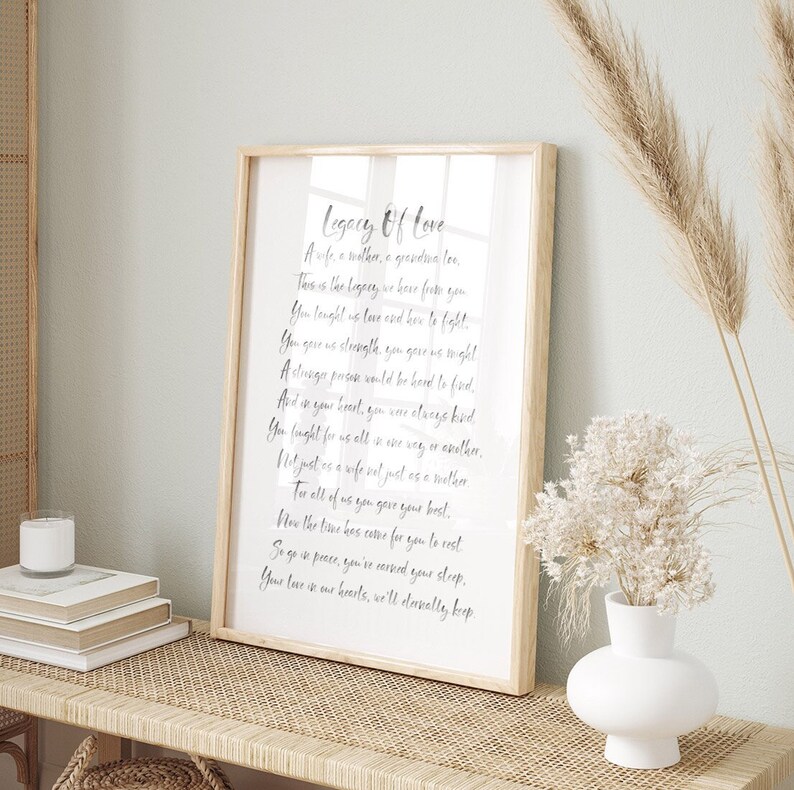 Legacy Of Love
A wife, a mother, a grandma too,
This is the legacy we have from you
You taught us love and how to fight,
You gave us strength, you gave us might.
A stronger person would be hard to find,
And in your heart, you were always kind.
You fought for us all in one way or another,
Not just as a wife not just as a mother.
For all of us you gave your best,
Now the time has come for you to rest.
So go in peace, you've earned your sleep,
Your love in our hearts, we'll eternally keep.